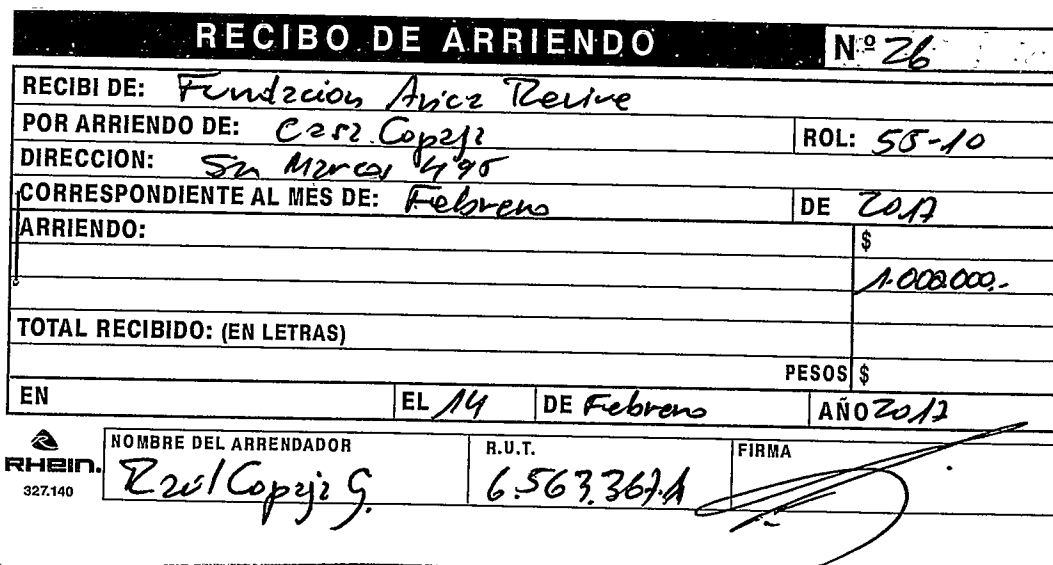 RECIBO DE ARRIENDO Nº 26
RECIBI DE: Fundacion Arica Revive
POR ARRIENDO DE: Casa Copaja ROL: 55-10
DIRECCION: Sn Marcos 495
CORRESPONDIENTE AL MES DE: Febrero DE 2017
ARRIENDO: $
1.000.000.-
TOTAL RECIBIDO: (EN LETRAS)
PESOS $
EN EL 14 DE Febrero AÑO 2017
RHEIN. NOMBRE DEL ARRENDADOR R.U.T. FIRMA
327.140 Raúl Copaja G. 6.563.367-1